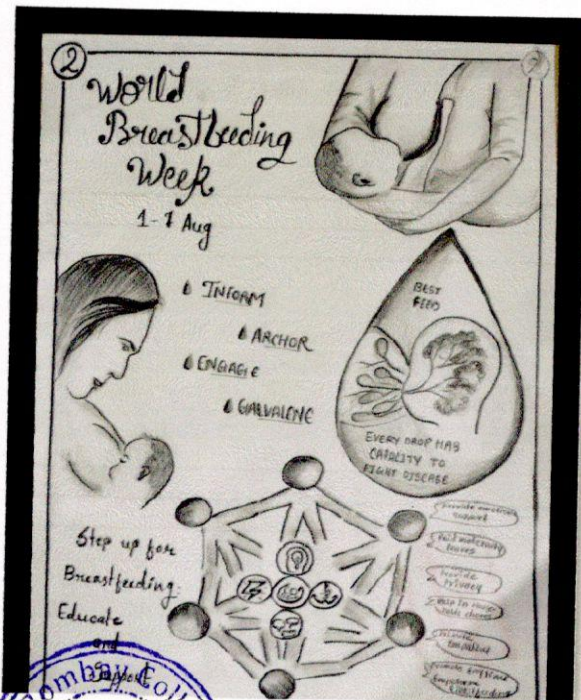 2
World
Breastfeeding
Week
1-7 Aug
INFORM
ARCHOR
ENGAGE
GALVALENE
BEST
FEED
EVERY DROP HAS
CAPACITY TO
FIGHT DISEASE
Step up for
Breastfeeding:
Educate
and
Support
Provide emotional
support
Paid maternity
leaves
Provide
Privacy